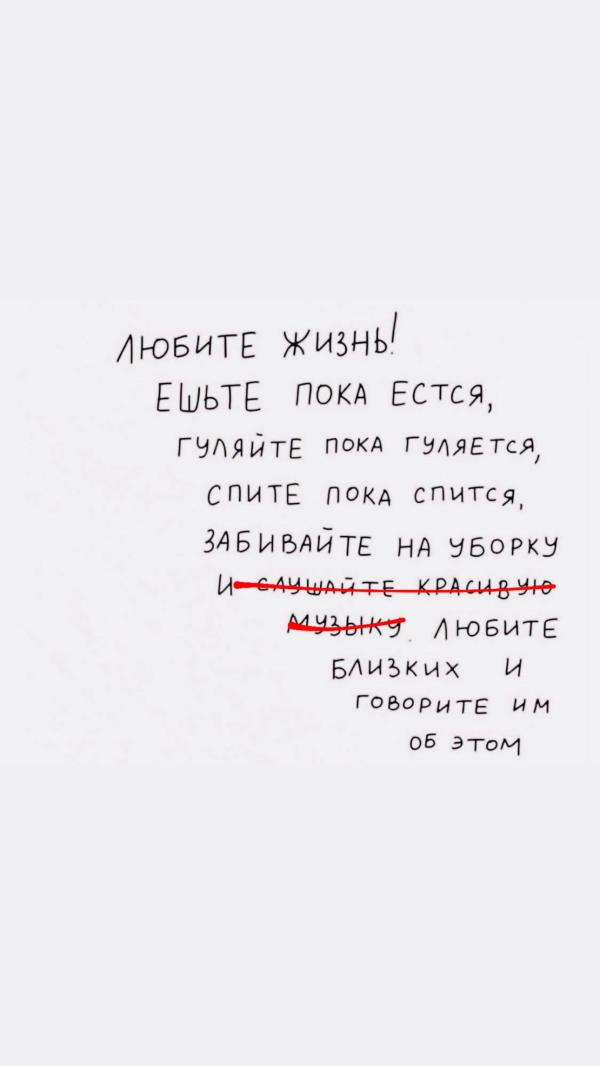 ЛЮБИТЕ ЖИЗНЬ!
ЕШЬТЕ ПОКА ЕСТСЯ,
ГУЛЯЙТЕ ПОКА ГУЛЯЕТСЯ,
СПИТЕ ПОКА СПИТСЯ,
ЗАБИВАЙТЕ НА УБОРКУ
И СЛУШАЙТЕ КРАСИВУЮ
МУЗЫКУ. ЛЮБИТЕ
БЛИЗКИХ И
ГОВОРИТЕ ИМ
ОБ ЭТОМ